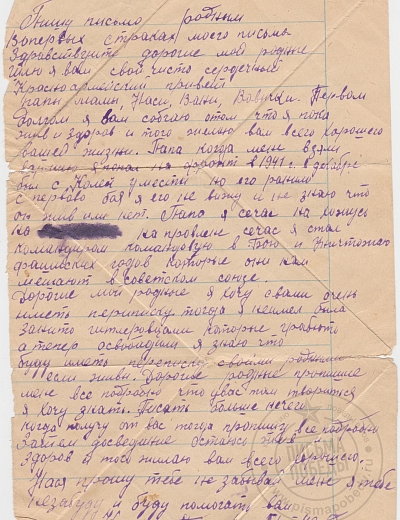 Пишу письмо родным
Вопервых строках моего письма
Здравствуйте дорогие мои родные
Шлю я вам свой чисто сердечный
Красноармейский привет
папи мами, Наси, Вани, Вовучки. Первом
долгом я вам собчаю о том что я пока
жив и здоров и того желаю вам всего хорошего
вашей жизни. Папа когда мене взяли
я попал на фронт в 1941 г. в декабре
был с Колей уместе но его ранило
с первово боя я его не вижу и не знаю что
он жив или нет. Папа я сечас на хожусь
на на провлене сечас я стал
командиром командовую в бою и уничтожаю
фашиских годов которые они нам
мешают в советском союзе.
Дорогие мои родные я хочу с вами очень
иметь переписку тогда я неимел была
занято гитлеровцами которые грабють
а тепер освободили я знаю что
буду иметь переписку своими родными
если живы. Дорогие родные пропишите
мене все подробно что у вас там творится
я хочу знать. Писать больше нечего
когда получу от вас тогда пропишу все подробно
Затем досведание остаюсь жив и
здоров и того желаю вам всего хорошего.
Ная прошу тебе не забывай мене я тебе
незабуду и буду помогать вам
ПИСЬМА
ПОБЕДЫ
pismapobedy.ru